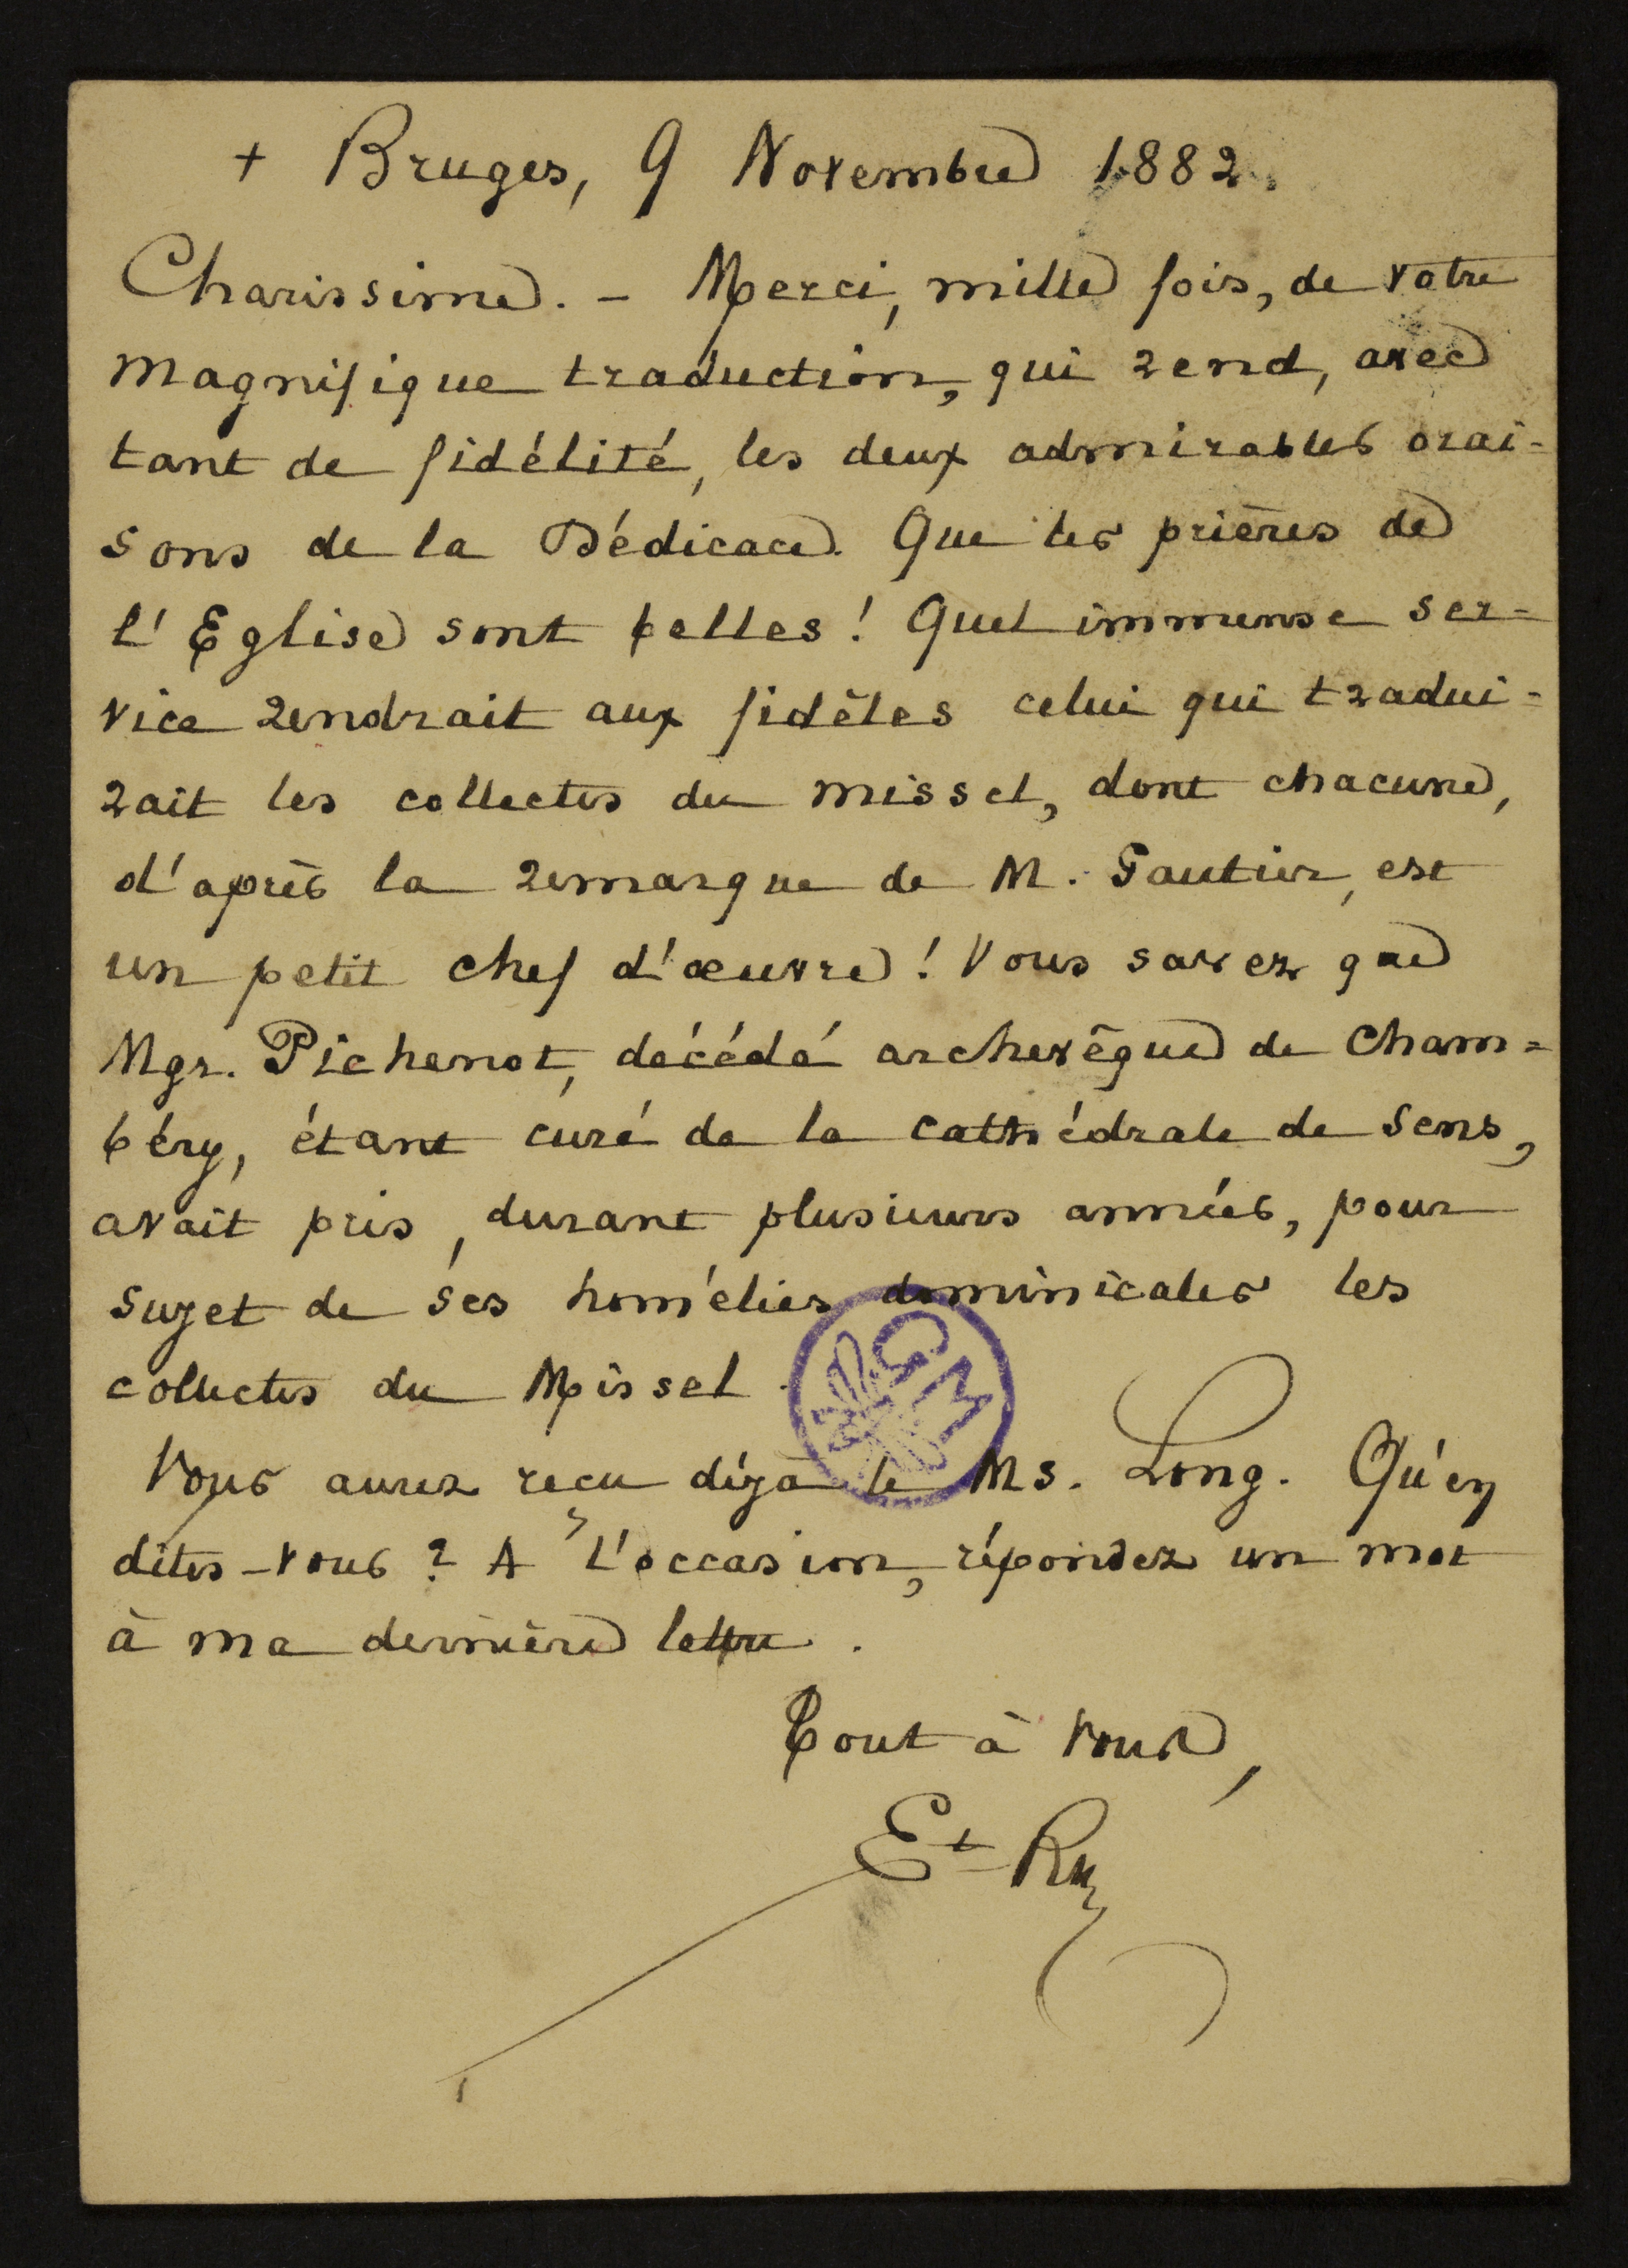 + Bruges, 9 Novembre 1882.
Charissime. - Merci, mille fois, de votre
magnifique traduction, qui rend, avec
tant de fidélité, les deux admirables orai=
sons de la Dédicace. Que les prières de
l'Eglise sont belles! Quel immense ser=
vice rendrait aux fidèles celui qui tradui=
rait les collectes du missel, dont chacune,
d'après la remarque de M. Gautier, est
un petit chef d'œuvre! Vous savez que
Mgr. Pichenot, décédé archevêque de Cham=
béry, étant curé de la cathédrale de Sens,
avait pris, durant plusieurs années, pour
sujet de ses homélies dominicales les
collectes du Missel.
GM
Vous aurez reçu déjà le Ms. Long. Qu'en
dites-vous? A l'occasion, répondez un mot
à ma dernière lettre.
Tout à vous,
Et